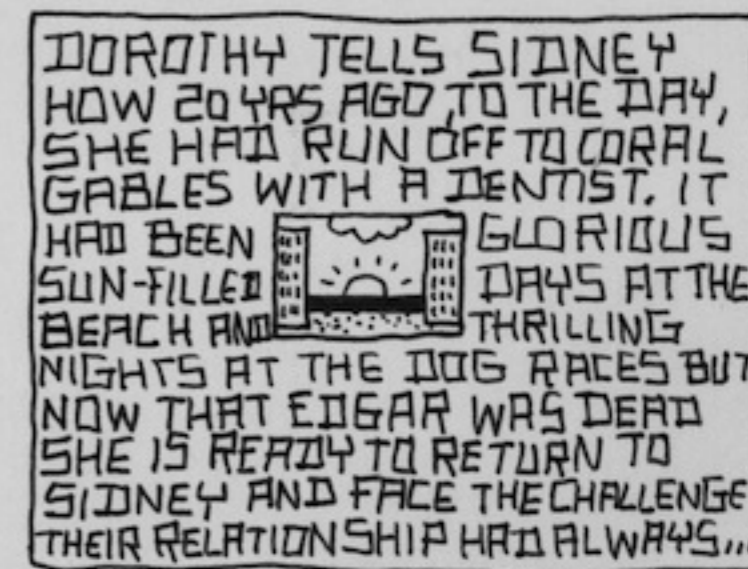 DOROTHY TELLS SIDNEY
HOW 20 YRS AGO, TO THE DAY,
SHE HAD RUN OFF TO CORAL
GABLES WITH A DENTIST. IT
HAD BEEN GLORIOUS
SUN-FILLED DAYS AT THE
BEACH AND THRILLING
NIGHTS AT THE DOG RACES BUT
NOW THAT EDGAR WAS DEAD
SHE IS READY TO RETURN TO
SIDNEY AND FACE THE CHALLENGE
THEIR RELATIONSHIP HAD ALWAYS...